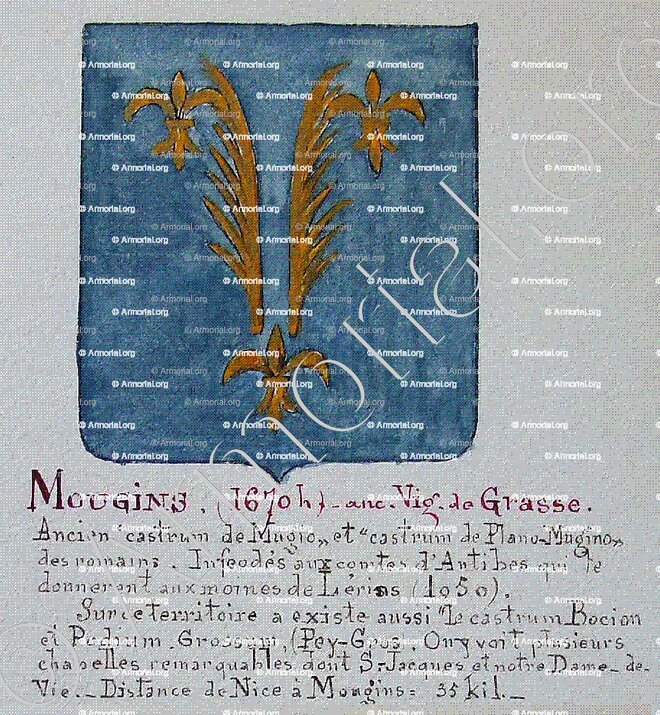 MOUGINS. (1670 h) - anc. Vig. de Grasse.
Ancien castrum de Mugio,, et "castrum de Plano-Mugino,,
des romains. Infeodés aux comtes d'Antibes qui le
donnerent aux moines de Lérins (1050).
Sur ce territoire a existe aussi "le castrum Bocion
et Podium Grossum, (Pey-Gros. On y voit plusieurs
chapelles remarquables dont St Jacques et notre Dame-de-
Vie._ Distance de Nice à Mougins= 35 kil._
© Armorial.org
Armorial.org